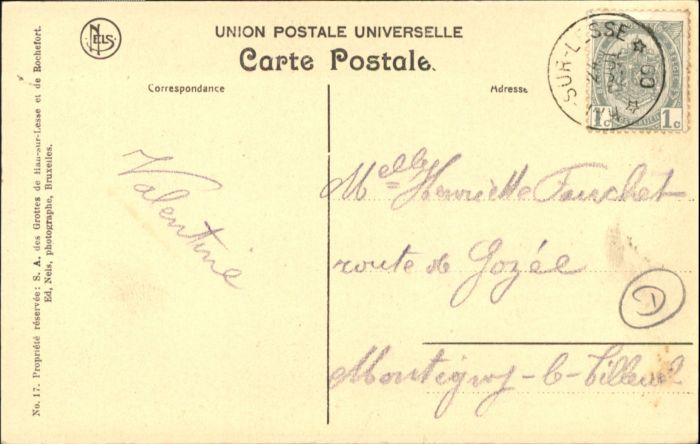 NELS
UNION POSTALE UNIVERSELLE
Carte Postale.
Correspondance
Adresse
SUR-LESSE
1c 1c
Valentine
Melle Henriette Fauchet
route de Gozée
Montigny-le-Tilleul
No. 17. Propriété réservée: S. A. des Grottes de Han-sur-Lesse et de Rochefort.
Ed, Nels, photographe, Bruxelles.